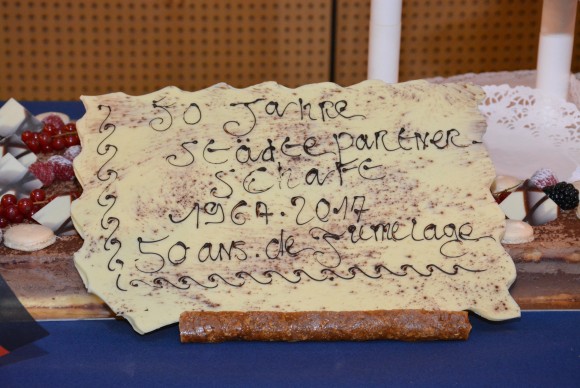 50 Jahre
Städtepartner-
schaft
1967-2017
50 ans de Jumelage